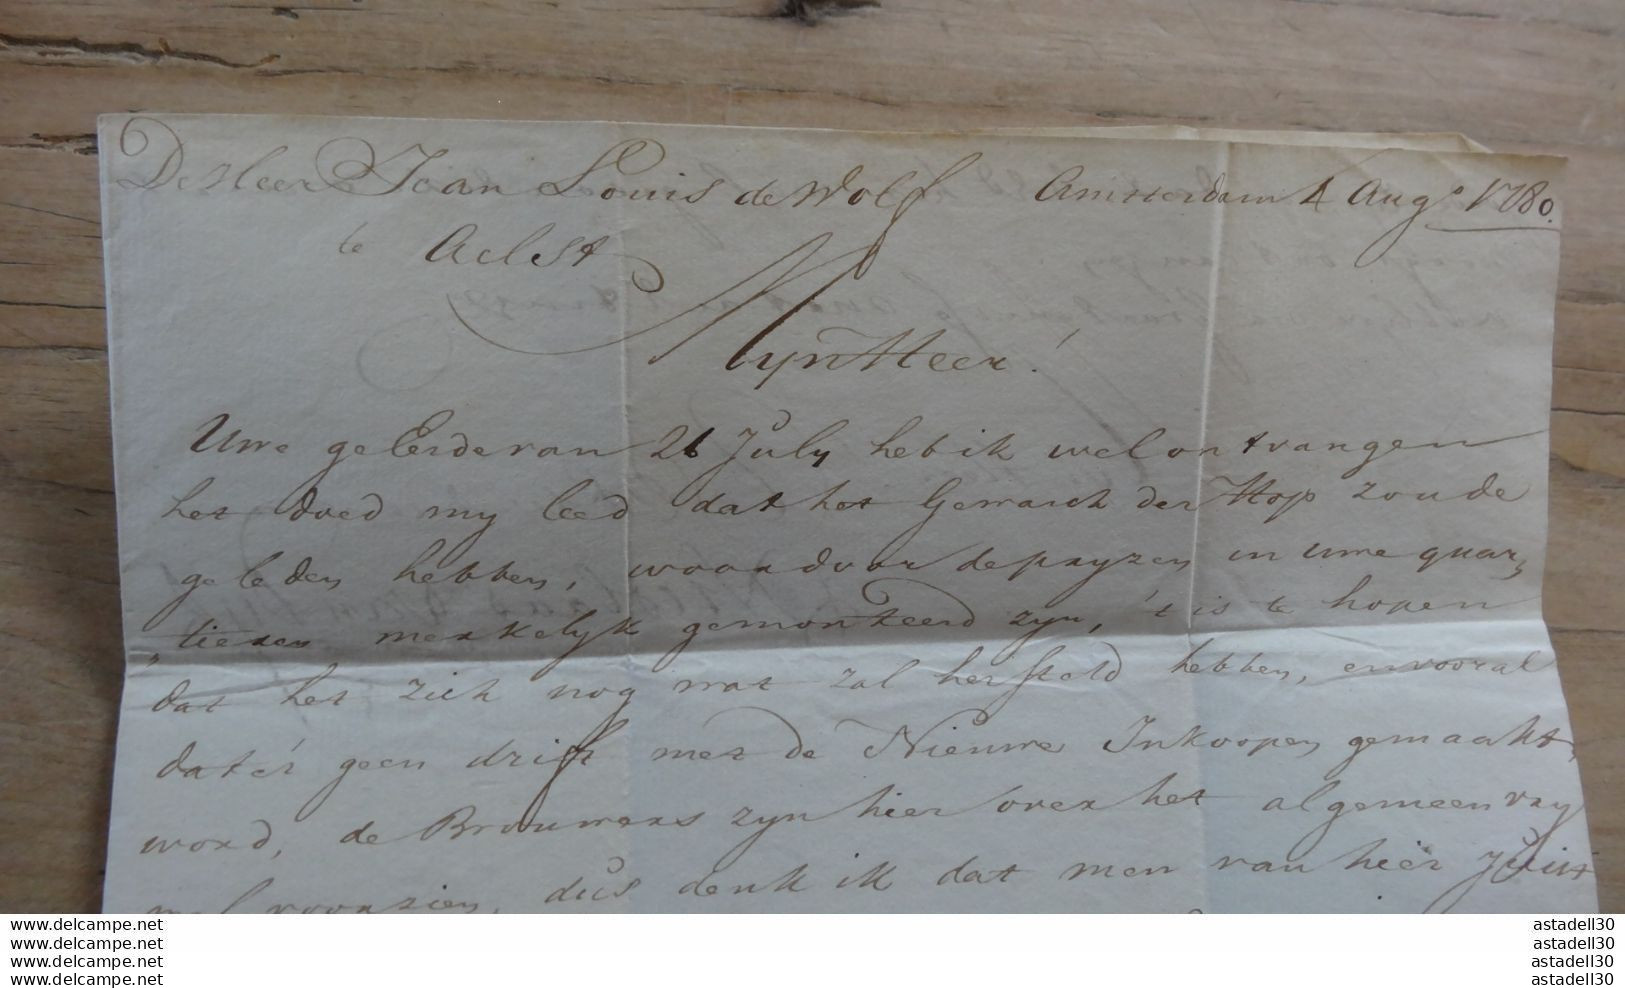 De Heer Jean Louis de Wolf Amsterdam 4 Augo 1780.
te Aelst
MynHeer!
Uwe geEerde van 26 July heb ik wel ontvangen
het doed my leed dat het Gewasch der Hop zoude
geleden hebben, waardoor de pryzen in uwe quar„
„tieren merkelyk gemonteerd zyn, 't is te hopen
dat het zich nog wat zal hersteld hebben, en vooral
dat 'er geen drift met de Nieuwe Inkoopen gemaakt
word, de Brouwers zyn hier over het algemeen vry
wel voorzien, dus denk ik dat men van hier juist
www.delcampe.net astadell30
www.delcampe.net astadell30
www.delcampe.net astadell30
www.delcampe.net astadell30